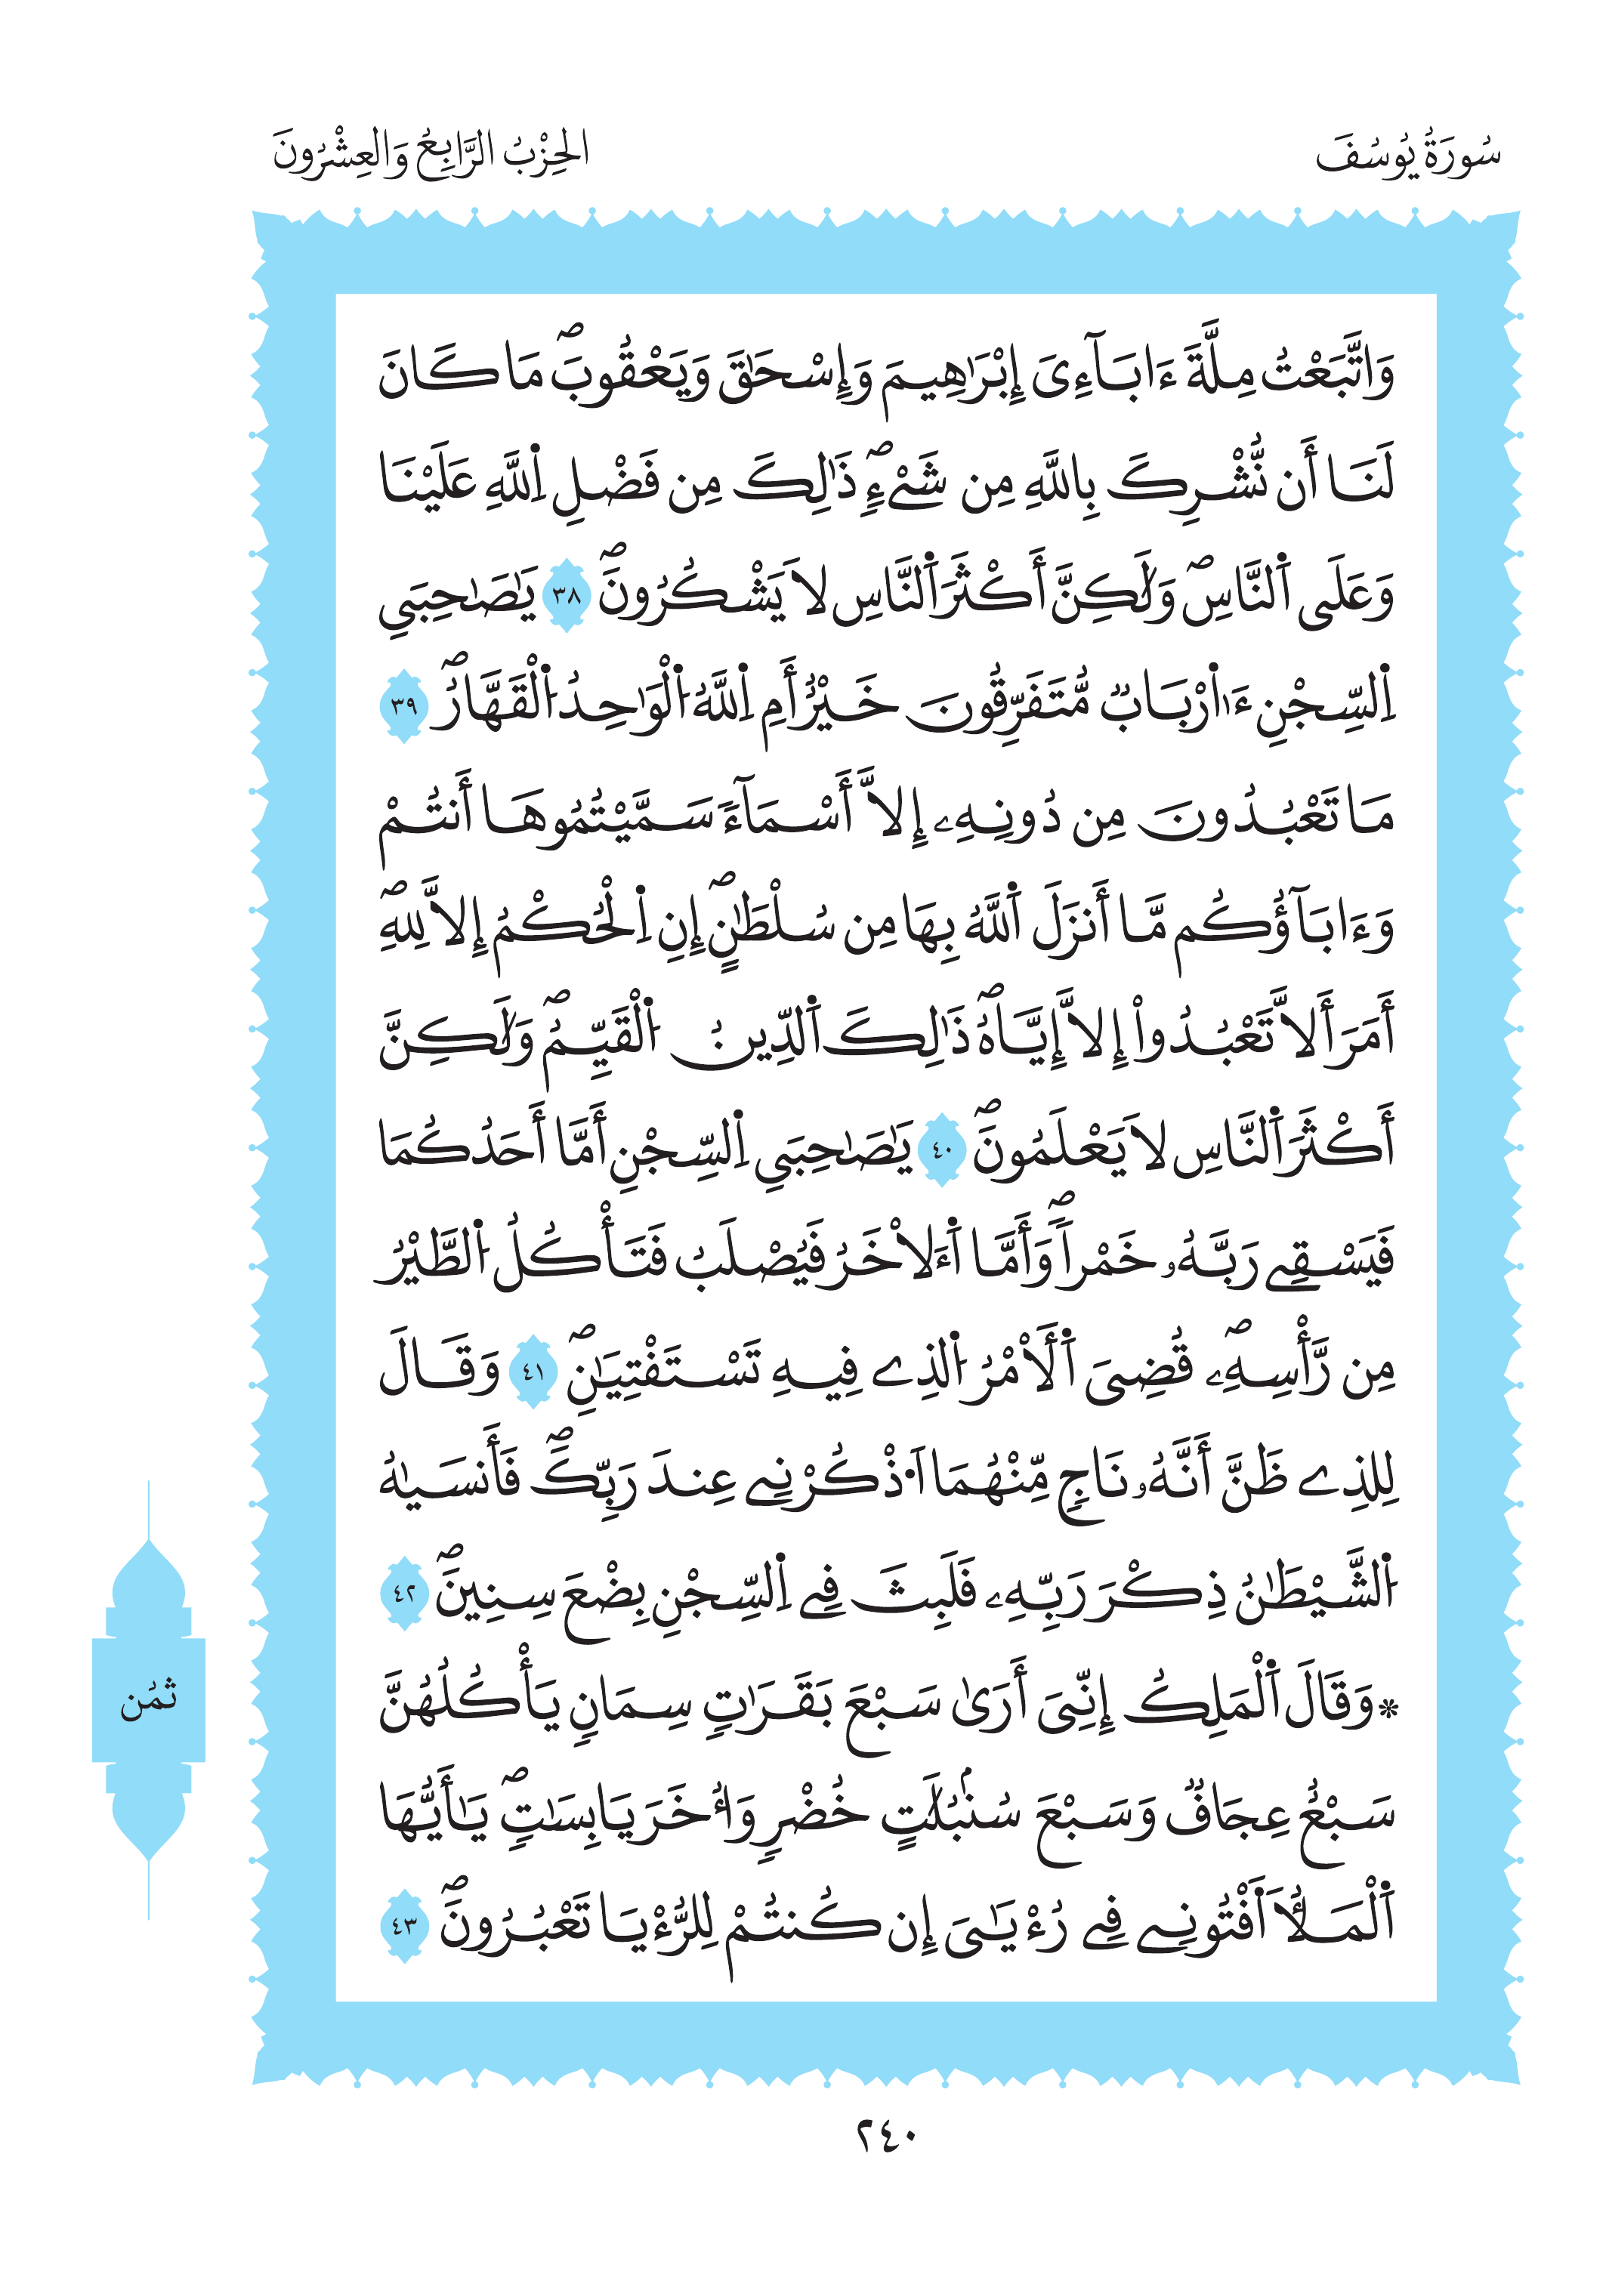 سُورَةُ يُوسُفَ
الحِزْبُ الرَّابِعُ وَالعِشْرُونَ
وَاتَّبَعْتُ مِلَّةَ ءَابَآءِىَ إِبْرَٰهِيمَ وَإِسْحَٰقَ وَيَعْقُوبَۖ مَا كَانَ
لَنَا أَن نُّشْرِكَ بِاللَّهِ مِن شَيْءٖۖ ذَٰلِكَ مِن فَضْلِ اِ۬للَّهِ عَلَيْنَا
وَعَلَى اَ۬لنَّاسِۖ وَلَٰكِنَّ أَكْثَرَ اَ۬لنَّاسِ لَا يَشْكُرُونَۖ ٣٨ يَٰصَٰحِبَيِ
اِ۬لسِّجْنِ ءَا۬رْبَابٞ مُّتَفَرِّقُونَ خَيْرٌ أَمِ اِ۬للَّهُ اُ۬لْوَٰحِدُ اُ۬لْقَهَّارُۖ ٣٩
مَا تَعْبُدُونَ مِن دُونِهِۦ إِلَّا أَسْمَآءٗ سَمَّيْتُمُوهَا أَنتُمْ
وَءَابَآؤُكُم مَّا أَنزَلَ اَ۬للَّهُ بِهَا مِن سُلْطَٰنٍۖ إِنِ اِ۬لْحُكْمُ إِلَّا لِلهِۖ
أَمَرَ أَلَّا تَعْبُدُواْ إِلَّا إِيَّاهُۖ ذَٰلِكَ اَ۬لدِّينُ اُ۬لْقَيِّمُۖ وَلَٰكِنَّ
أَكْثَرَ اَ۬لنَّاسِ لَا يَعْلَمُونَۖ ٤٠ يَٰصَٰحِبَيِ اِ۬لسِّجْنِ أَمَّا أَحَدُكُمَا
فَيَسْقِے رَبَّهُۥ خَمْراٗۖ وَأَمَّا اَ۬ءَلَاخَرُ فَيُصْلَبُ فَتَأْكُلُ اُ۬لطَّيْرُ
مِن رَّأْسِهِۦۖ قُضِىَ اَ۬لَامْرُ اُ۬لذِے فِيهِ تَسْتَفْتِيَٰنِۖ ٤١ وَقَالَ
لِلذِے ظَنَّ أَنَّهُۥ نَاجٖ مِّنْهُمَا اَ۟ذْكُرْنِے عِندَ رَبِّكَۖ فَأَنسَيٰهُ
اُ۬لشَّيْطَٰنُ ذِكْرَ رَبِّهِۦ فَلَبِثَ فِے اِ۬لسِّجْنِ بِضْعَ سِنِينَۖ ٤٢
* وَقَالَ اَ۬لْمَلِكُ إِنِّىَ أَرَىٰ سَبْعَ بَقَرَٰتٖ سِمَانٖ يَأْكُلُهُنَّ
سَبْعٌ عِجَافٞ وَسَبْعَ سُنۢبُلَٰتٍ خُضْرٖ وَأُخَرَ يَابِسَٰتٖۖ يَٰأَيُّهَا
اَ۬لْمَلَأُ اَ۬فْتُونِے فِے رُءْيَٰىَ إِن كُنتُمْ لِلرُّءْيَا تَعْبُرُونَۖ ٤٣
ثمُن
٢٤٠